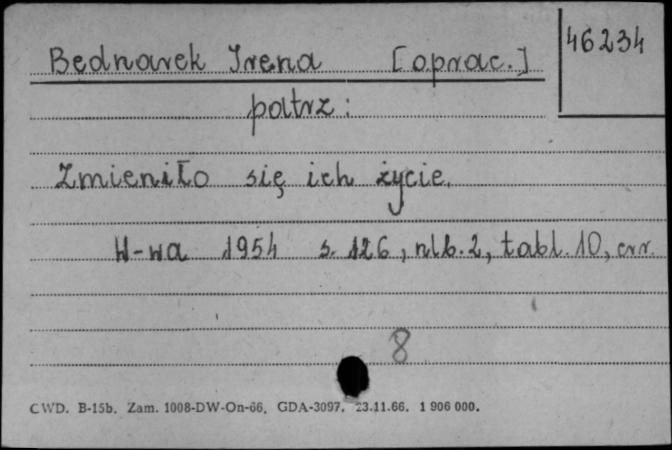 Bednarek Irena [oprac.]
46234
patrz:
Zmieniło się ich życie.
W-wa 1954 s. 126, nlb. 2, tabl. 10, err.
8
CWD. B-15b. Zam. 1008-DW-On-66. GDA-3097. 23.11.66. 1 906 000.